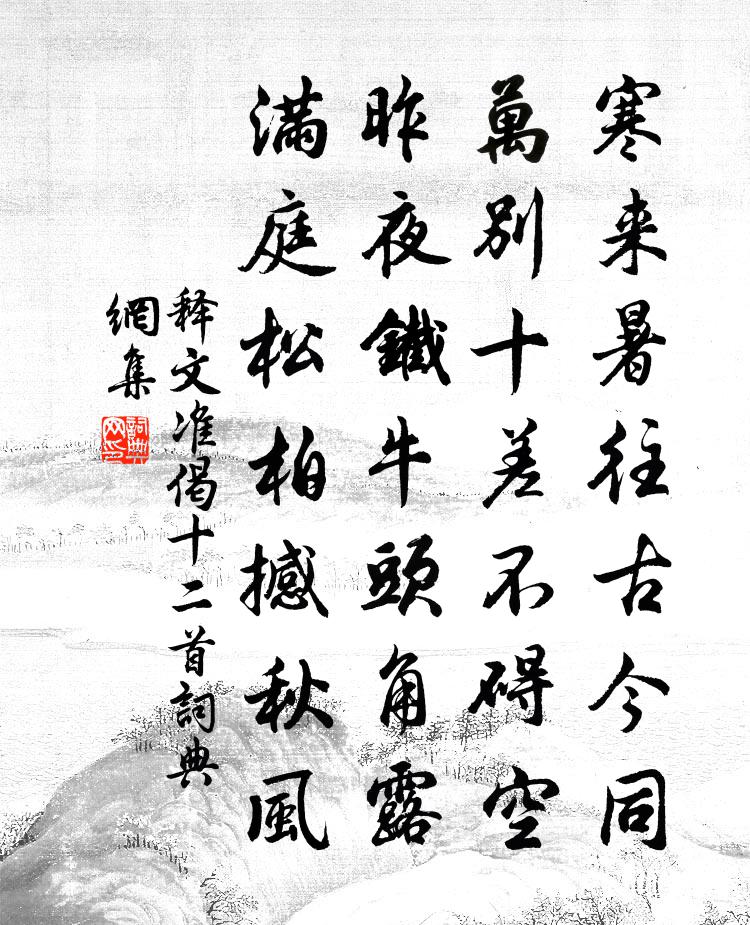 寒来暑往古今同
萬別十差不碍空
昨夜鐵牛頭角露
滿庭松柏撼秋風
释文准偈十二首詞典
網集
詞典
网印